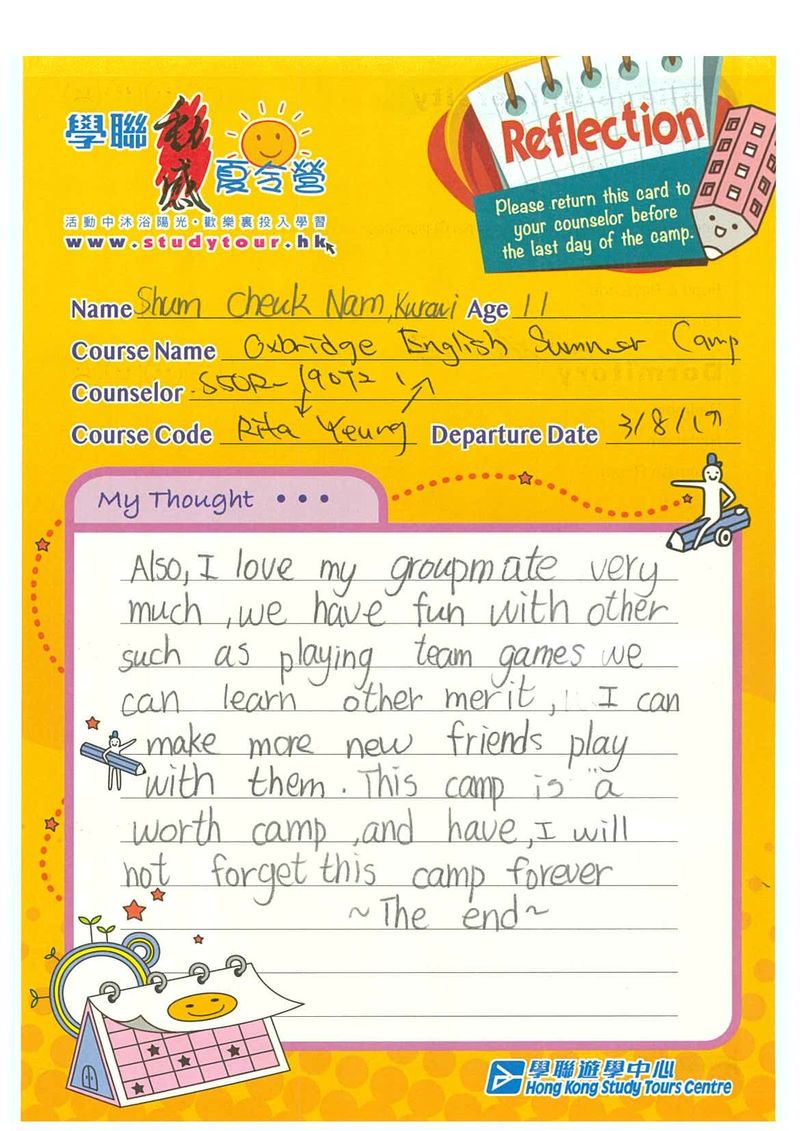 學聯 動感 夏令營
活動中沐浴陽光・歡樂裏投入學習
www.studytour.hk
Reflection
Please return this card to
your counselor before
the last day of the camp.
Name Shum Cheuk Nam, Kurani Age 11
Course Name Oxbridge English Summer Camp
Counselor SSOR-19072
Course Code Rita Yeung Departure Date 3/8/19
My Thought • • •
Also, I love my groupmate very
much ,we have fun with other
such as playing team games we
can learn other merit, I can
make more new friends play
with them. This camp is a
worth camp ,and have, I will
not forget this camp forever
~The end~
學聯遊學中心
Hong Kong Study Tours Centre